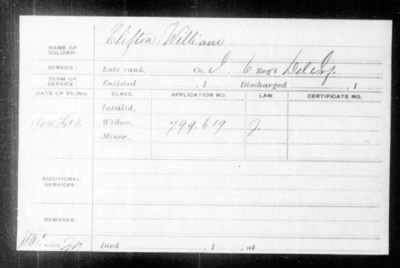 NAME OF SOLDIER: Clifton, William
SERVICE: Late rank, Co. I 6 Reg't Del Inf.
TERM OF SERVICE: Enlisted , 1 Discharged , 1
DATE OF FILING. CLASS. APPLICATION NO. LAW. CERTIFICATE NO.
Invalid,
1904 Widow, 799.619 J.
Minor,
ADDITIONAL SERVICES:
REMARKS:
Died , 1 , at